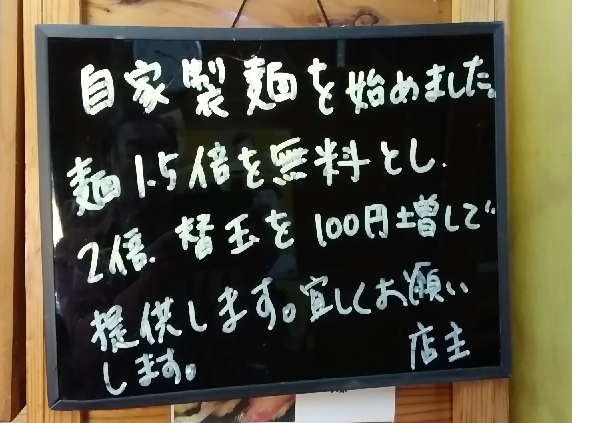 自家製麺を始めました。
麺1.5倍を無料とし、
2倍、替玉を100円増しで
提供します。宜しくお願い
します。 店主